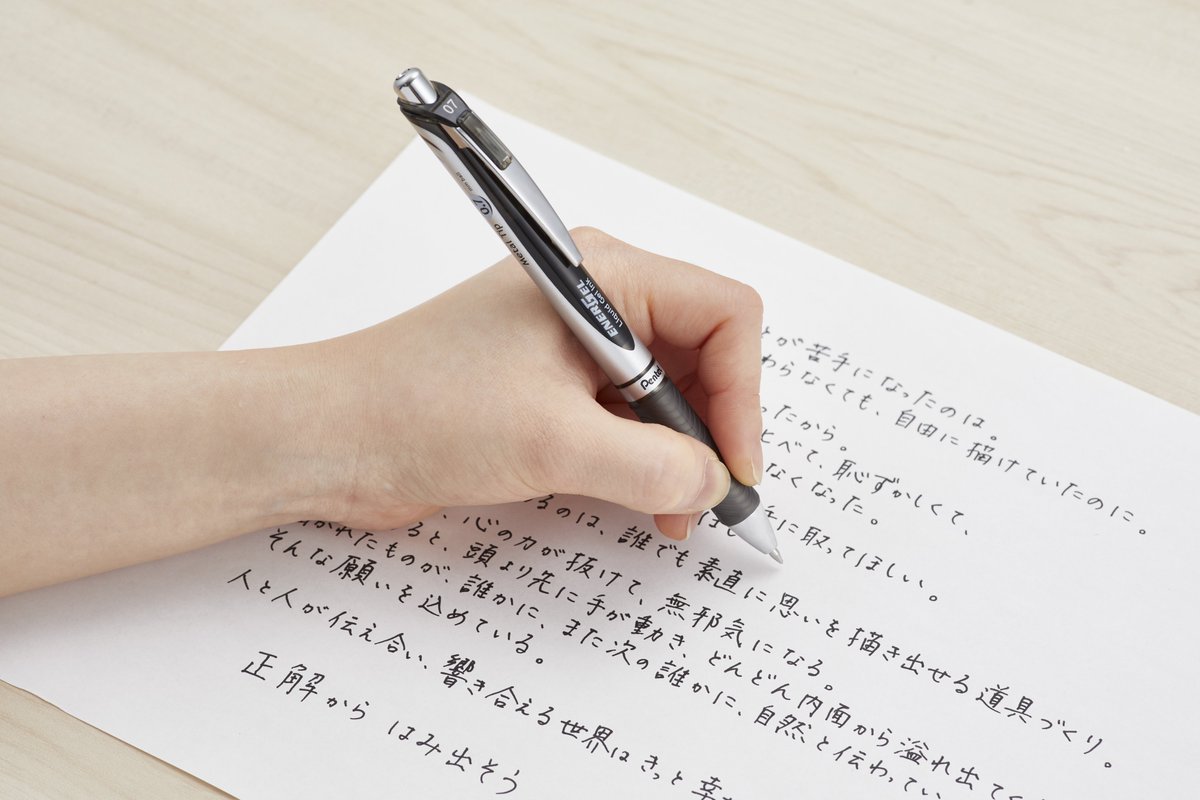 07
mm ball
0.7
Metal Tip
ENERGEL
Liquid Gel Ink
Pentel
が苦手になったのは。
わらなくても、自由に描けていたのに。
ったから。
べて、恥ずかしくて、
なくなった。
手に取ってほしい。
るのは、誰でも素直に思いを描き出せる道具づくり。
、心の力が抜けて、無邪気になる。
ると、頭より先に手が動き、どんどん内面から溢れ出てく
かれたものが、誰かに、また次の誰かに、自然と伝わってい
そんな願いを込めている。
人と人が伝え合い、響き合える世界はきっと幸
正解から はみ出そう